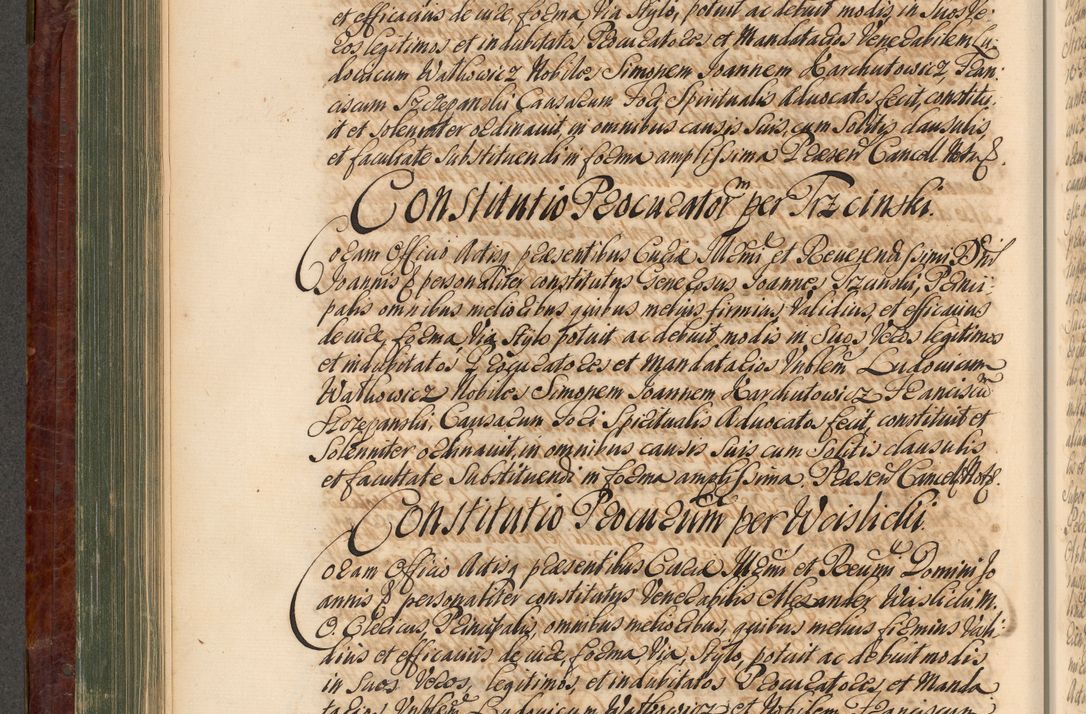 et efficacius de jure, forma, via, stylo, potuit ac debuit modis, in Suos Ve-
ros legitimos et indubitatos Procuratores et Mandatarios Venerabilem Lu-
dovicum Wathowicz Nobiles Simonem Joannem Karchutowicz, Fran-
ciscum Szczepanskii Causarum Fori Spiritualis Advocatos fecit, constitu-
it et solenniter ordinavit, in omnibus causis suis, cum solitis clausulis
et facultate substituendi in forma amplissima Praesen Cancell. Notr
Constitutio Procurator m per Trzcinski.
Coram Officio Actisq praesentibus Curiae Illmi et Reverendissimi Dni
Joannis personaliter constitutus Generosus Joannes Trzcinski, Princi-
palis omnibus melioribus quibus melius firmius, validius, et efficacius
de jure, forma, via, stylo potuit ac debuit modis in Suos Veros legitimos
et indubitatos Procuratores et Mandatarios Vnblem Ludovicum
Wathowicz Nobiles Simonem Joannem Karchutowicz Franciscu
Szczepanskii, Causarum Fori Spiritualis Advocatos fecit, constituit et
solenniter ordinavit, in omnibus causis suis cum solitis clausulis
et facultate substituendi in forma amplissima. Praesen Cancell. Notr.
Constitutio Procurum per Woislickii
Coram Officio Actisq praesentibus Curiae Illmi et Reumi Domini Jo
annis personaliter constitutus Venerabilis Alexander Woislickii M.
O. Clericus Principalis, omnibus melioribus, quibus melius firmius vali-
dius et efficacius de jure, forma, via, stylo, potuit ac debuit modis
in Suos Veros, legitimos, et indubitatos Procuratores, et Manda
tarios Vnblem Ludovicum Wathowicz et Nobilem Franciscum